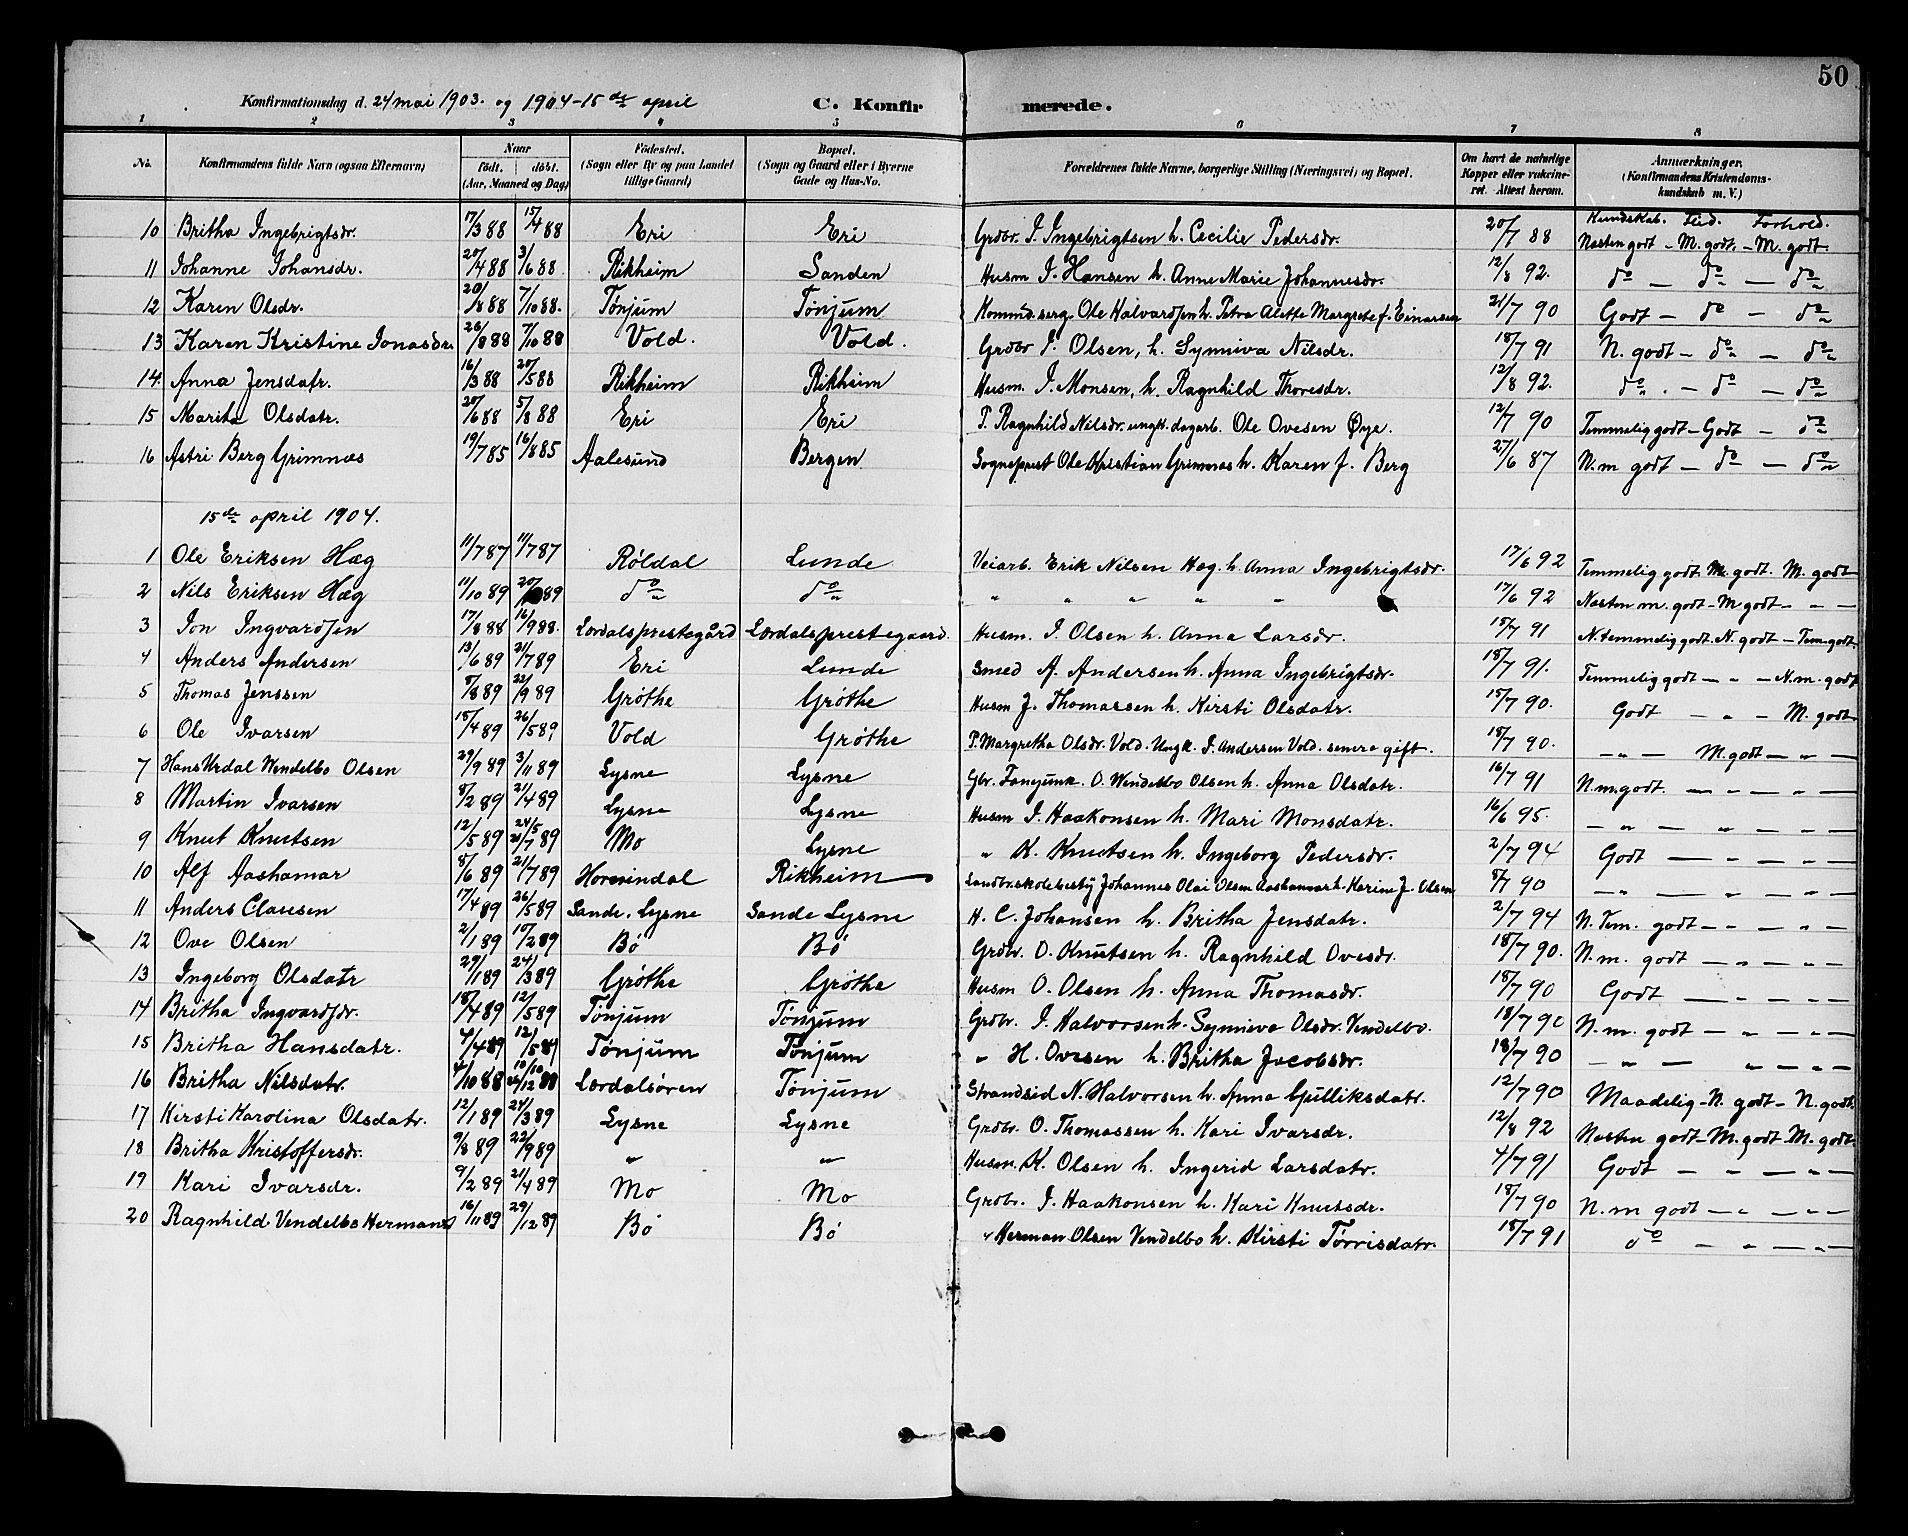 50
Konfirmationsdag d. 24 mai 1903. og 1904-15de april C. Konfirmerede.
1 2 3 4 5 6 7 8
No. Konfirmandens fulde Navn (ogsaa Efternavn) Naar født. døbt. (Aar, Maaned og Dag) Fødested. (Sogn eller By og paa Landet tillige Gaard) Bopæl. (Sogn og Gaard eller i Byerne Gade og Hus-No. Forældrenes fulde Navne, borgerlige Stilling (Næringsvei) og Bopæl. Om havt de naturlige Kopper eller vaccineret. Attest herom. Anmærkninger. (Konfirmandens Kristendomskundskab m. V.)
Kundskab. Flid. Forhold.
10 Britha Ingebrigtsdr. 17/3 88 15/4 88 Eri Eri Grdbr. I. Ingebrigtsen h. Cecilie Pedersdr. 20/7 88 Næsten godt - M. godt. - M. godt.
11 Johanne Johansdr. 20/4 88 3/6 88. Rikheim Sanden Husm I. Hansen h. Anne Marie Johannesdr. 12/8 92. do - do - do
12 Karen Olsdr. 20/8 88 7/10 88. Tønjum Tønjum Ole Halvardsen h. Petra Alette Margrete f. Einarsen 21/7 90 Godt - do - do
13 Karen Kristine Jonasdr. 26/8 88 7/10 88 Vold. Vold. Grdbr J. Olsen, h. Synniva Nilsdr. 18/7 91 N. godt - do - do
14. Anna Jensdatr. 16/3 88 20/5 88 Rikheim Rikheim Husm. J. Monsen, h. Ragnhild Thoresdr. 12/8 92. do. - do - do
15 Marita Olsdatr. 20/6 88 5/8 88 Eri Eri P. Ragnhild Nilsdr. ungk. dagarb. Ole Ovesen Øye. 12/7 90 Temmelig godt - Godt - do
16 Astri Berg Grimnæs 19/7 85 16/8 85 Aalesund Bergen Sogneprest Ole Kristian Grimnæs h. Karen f. Berg 27/6 87 N. m godt - do - do
15de april 1904.
1 Ole Eriksen Hæg 11/7 87 11/7 87 Røldal Lunde Veiarb. Erik Nilsen Hæg. h. Anna Ingebrigtsdr. 17/6 92 Temmelig godt. M. godt. M. godt
2 Nils Eriksen Hæg 11/10 89 20/ 89 do do " " " " " 17/6 92 Næsten m. godt - M godt - " -
3 Jon Ingvardsen 17/8 88 16/9 88. Lærdalsprestegård Lærdalsprestegaard. Husm. I. Olsen h. Anna Larsdr. 15/7 91 N. temmelig godt. N. godt - Tem. godt.
4 Anders Andersen 13/6 89 21/7 89 Eri Lunde Smed A. Andersen h. Anna Ingebrigtsdr. 18/7 91. Temmelig godt - " - N. m. godt
5 Thomas Jenssen 5/8 89 22/9 89 Grøthe Grøthe Husm J. Thomassen h. Kirsti Olsdatr. 15/7 90. Godt - " - M. godt
6 Ole Ivarsen 15/4 89 26/5 89 Vold Grøthe P. Margretha Olsdr. Vold. Ungk. I. Andersen Vold. senere gift. 18/7 90. - " - M. godt - " -
7 Hans Urdal Wendelbo Olsen 29/9 89 3/11 89 Lysne Lysne Gbr. O. Wendelbo Olsen h. Anna Olsdatr. 16/7 91 N. m. godt. - " - " -
8 Martin Ivarsen 8/2 89 21/4 89 Lysne Lysne Husm I. Haakonsen h. Mari Monsdatr. 16/6 95. - " - " - " -
9 Knut Knutsen 12/5 89 24/5 21/7 89 Mo Lysne " K. Knutsen h. Ingeborg Pedersdr. 2/7 94 Godt - " - " -
10 Alf Aashamar 8/6 89 21/7 89 Hornindal Rikheim Landbr.skolebesty Johannes Olai Olsen Aashamar h. Karine J. Olsen 5/7 90 - " - " - " -
11 Anders Clausen 17/4 89 26/5 89 Sande, Lysne Sande Lysne H. C. Johansen h. Britha Jensdatr. 2/7 94 N. Tem. godt - " - " -
12 Ove Olsen 2/1 89 10/2 89 Bø Bø Grdbr. O. Knutsen h. Ragnhild Ovesdr. 18/7 90. N. m. godt - " - " -
13 Ingeborg Olsdatr 27/1 89 24/3 89 Grøthe Grøthe Husm O. Olsen h. Anna Thomasdr. 15/7 90 Godt - " - " -
14 Britha Ingvardsdr. 18/4 89 12/5 89 Tønjum Tønjum Grdbr. I. Halvorsen h. Synnieva Olsdr. Vendelbo. 18/7 90 N. m. godt - " - " -
15 Britha Hansdatr. 4/4 89 12/5 89 Tønjum Tønjum " H. Ovesen h. Britha Jacobsdr. 18/7 90 - " - " - " -
16 Britha Nilsdatr. 4/10 88 10/10 26/12 88 Lærdalsøren Tønjum Strandsid N. Halvorsen h. Anna Gulliksdatr. 12/7 90 Maadelig - N. godt - N. godt.
17 Kirsti Karolina Olsdatr. 12/1 89 24/3 89 Lysne Lysne Grdbr. O. Thomassen h. Kari Ivarsdr. 12/8 92 Næsten godt - M. godt - M. godt
18 Britha Kristoffersdr. 9/8 89 22/9 89 " " Husm. K. Olsen h. Ingerid Larsdatr. 4/7 91 Godt - " - " -
19 Kari Ivarsdr. 9/2 89 21/4 89 Mo Mo Grdbr. I. Haakonsen h. Kari Knutsdr. 18/7 90 N. m godt - " - " -
20 Ragnhild Vendelbo Hermans 16/11 89 29/12 89 Bø Bø " Herman Olsen Vendelbo h. Kirsti Tørrisdatr. 15/7 91 do - " - " -